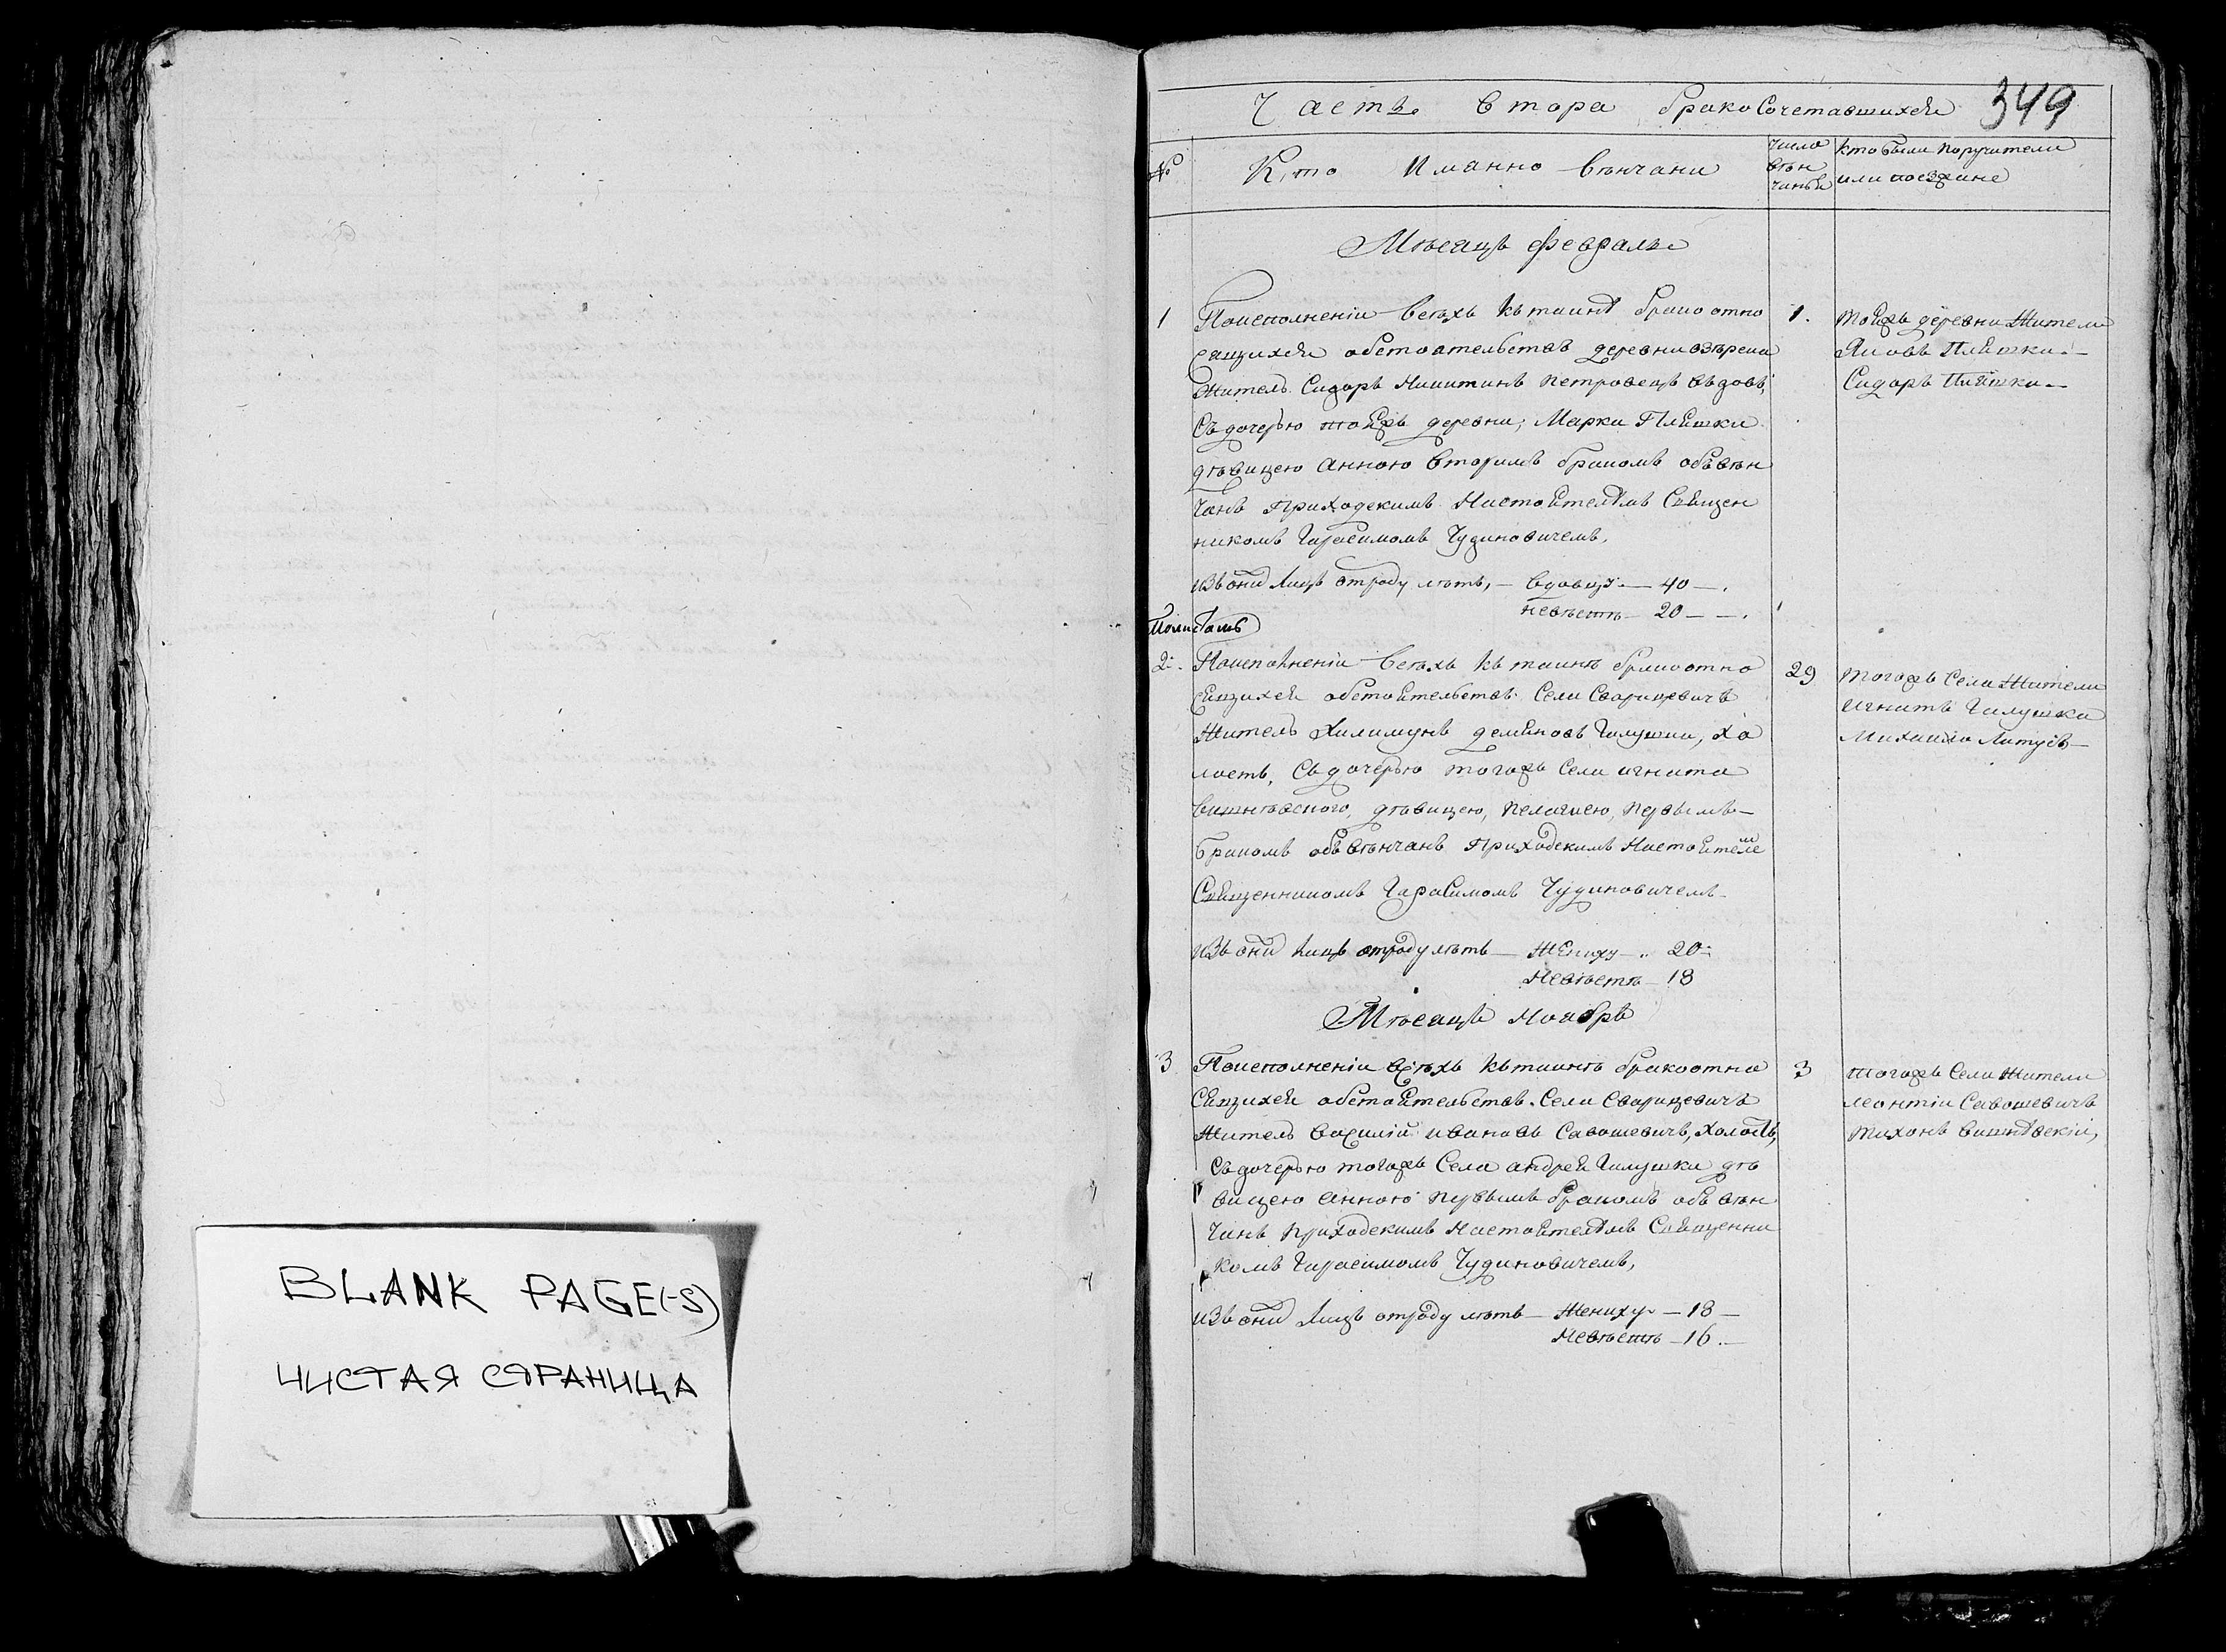 349
Часть втора бракосочетавшихся
№
Кто иманно венчани
число
вѣн
чанья
кто были поручители
или поезжине
Мѣсяцъ февраль
1
Поисполненіи всѣхъ къ таинѣ брако отно
сящихся обстоятельствъ деревни озѣрека
житель Сидоръ Никитинъ Петровецъ вдовъ,
Съ дочерью тоейжъ деревни, Марка Пляшки
дѣвицею Анною вторимъ бракомъ обвѣн
чанъ приходскимъ Настоятелѣмъ Священ
никомъ Гарасимомъ Чудиновичемъ,
изъ онихъ лицъ отроду лѣтъ, — вдовцу — 40 —
невѣстѣ — 20 —
1.
тоейжъ деревни жители
Яковъ Пляшка —
Сидоръ Пляшка —
2.
Поисполненіи всѣхъ къ таинѣ брако отно
сящихся обстоятельствъ Села Сварицевичъ
житель Хилимунъ Демяновъ Галушка, хо
лостъ, Съ дочерью тогожъ Села Игната
Вишнѣвского, дѣвицею, Пелагиею, Первымъ —
бракомъ обвѣнчанъ Приходскимъ Настоятелемъ
Священникомъ Гарасимомъ Чудиновичемъ
изъ онихъ лицъ отроду лѣтъ — жениху — 20
Невѣстѣ — 18
29
тогожъ Села жители
Игнатъ Галушка
Михаило
Мѣсяцъ Ноябръ
3
Поисполненіи всѣхъ къ таинѣ брако отно
сящихся обстоятельствъ. Села Сварицевичъ
житель Василій Ивановъ Савошевичъ, холостъ,
Съ дочерью тогожъ Села Андрея Галушки дѣ
вицею Анною Первымъ бракомъ обвѣн
чанъ приходскимъ Настоятелѣмъ Священни
комъ Гарасимомъ Чудиновичемъ,
изъ онихъ лицъ отроду лѣтъ — Жениху — 18 —
Невѣстѣ — 16 —
3
тогожъ Села жители
Леонтіи Савошевичъ
Тихонъ Вишнѣвскіи,
BLANK PAGE(-S)
ЧИСТАЯ СТРАНИЦА